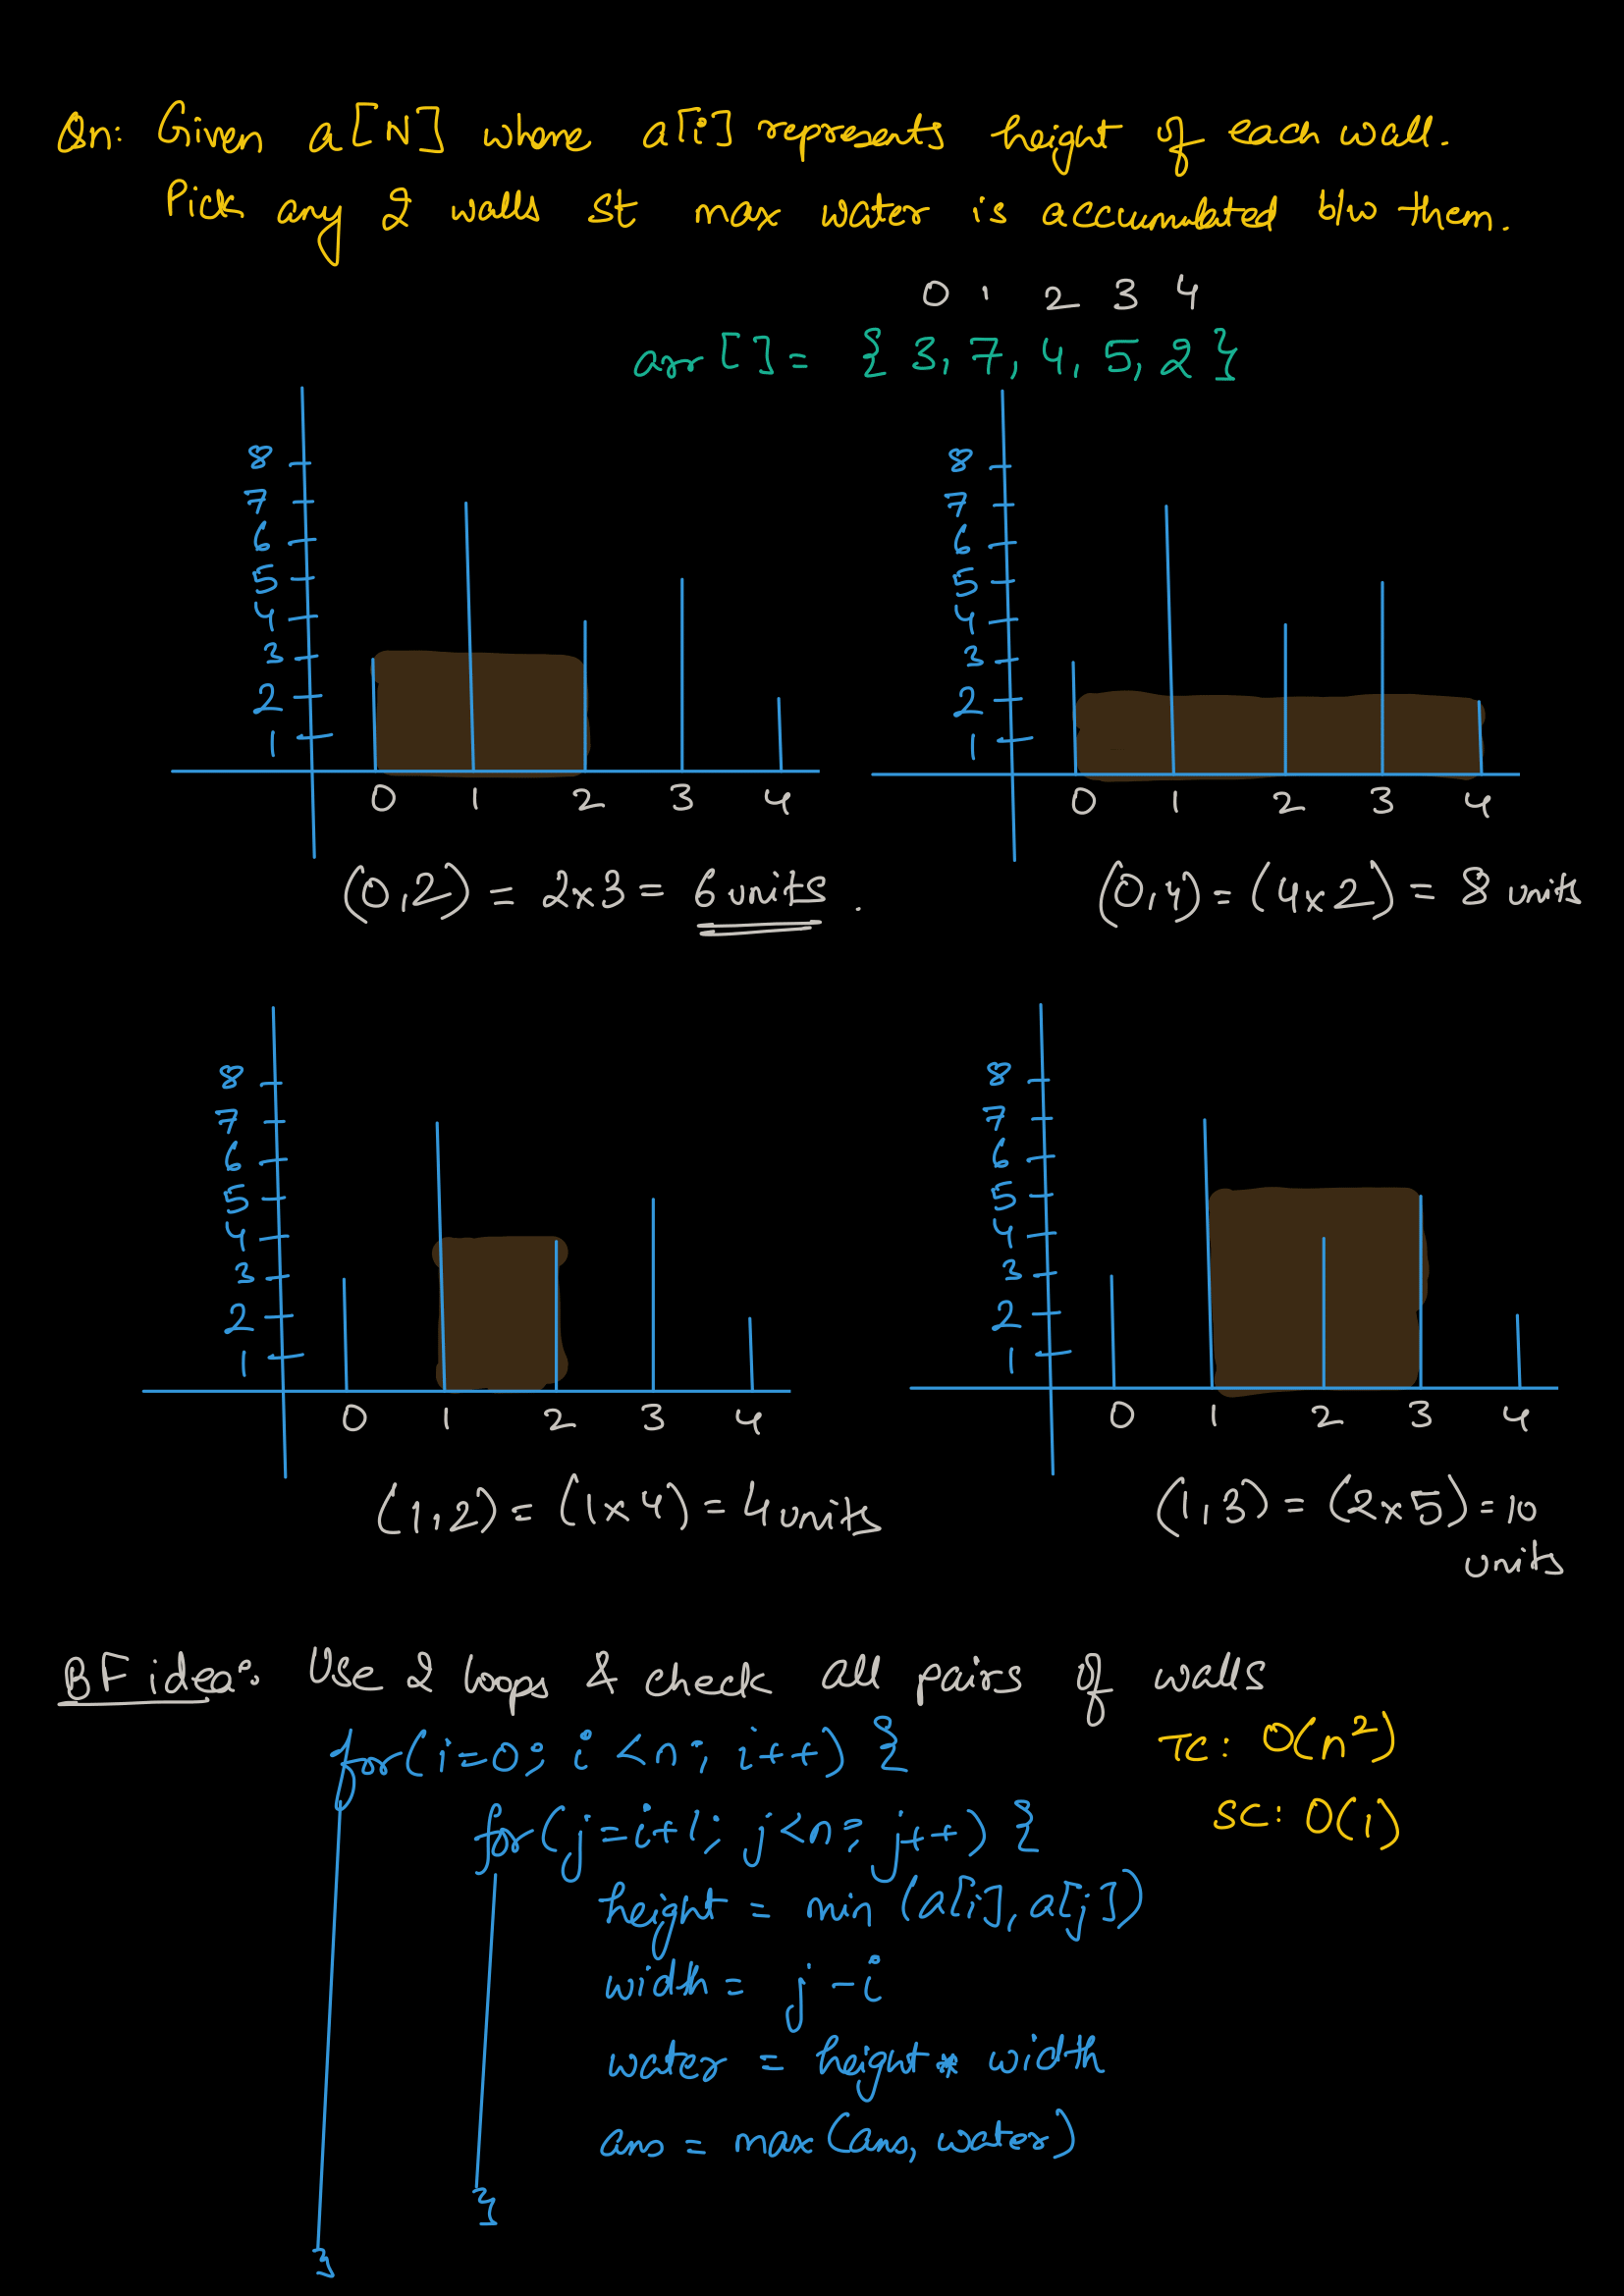 Qn: Given a[N] where a[i] represents height of each wall.
Pick any 2 walls st max water is accumulated b/w them.
0 1 2 3 4
arr[] = {3, 7, 4, 5, 2}
8
7
6
5
4
3
2
1
0 1 2 3 4
(0,2) = 2x3 = 6 units.
8
7
6
5
4
3
2
1
0 1 2 3 4
(0,4) = (4x2) = 8 units
8
7
6
5
4
3
2
1
0 1 2 3 4
(1,2) = (1x4) = 4 units
8
7
6
5
4
3
2
1
0 1 2 3 4
(1,3) = (2x5) = 10
units
BF idea: Use 2 loops & check all pairs of walls
for(i=0; i<n; i++) {
TC: O(n²)
for(j=i+1; j<n; j++) {
SC: O(1)
height = min (a[i], a[j])
width = j-i
water = height * width
ans = max(ans, water)
}
}